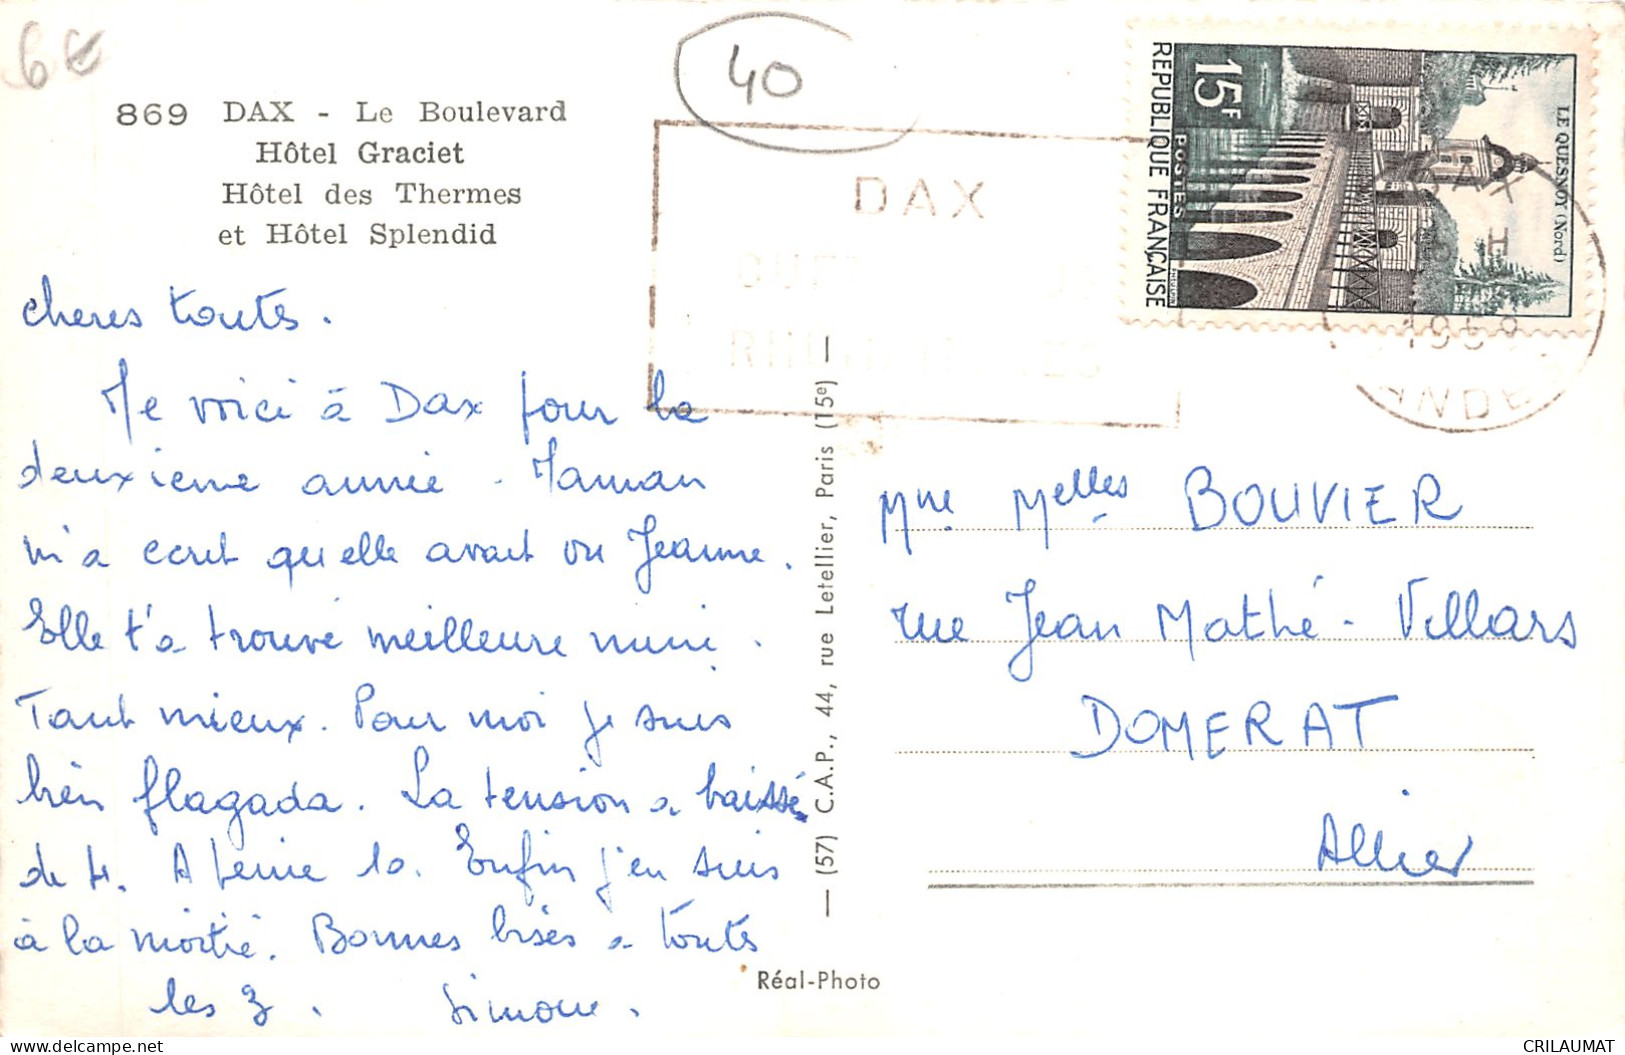 6€
40
869 DAX - Le Boulevard
Hôtel Graciet
Hôtel des Thermes
et Hôtel Splendid
DAX
REPUBLIQUE FRANÇAISE
15F
POSTES
LE QUESNOY (Nord)
DAX
1958
LANDES
cheres toutes.
Me voici à Dax pour la
deuxieme année. Maman
m'a ecrit qu'elle avait vu Jeanne.
Elle t'a trouvé meilleure mine.
Tant mieux. Pour moi je suis
bien flagada. La tension a baissé
de 4. A peine 10. Enfin j'en suis
à la moitié. Bonnes bises a toutes
les 3. Simone.
— (57) C.A.P., 44, rue Letellier, Paris (15e) —
Réal-Photo
Mme Melles BOUVIER
rue Jean Mathé - Villars
DOMERAT
Allier
CRILAUMAT
delcampe.net